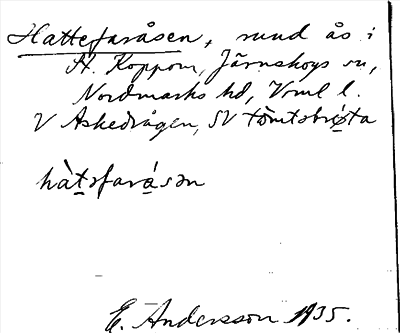 Hattefaråsen, rund ås i
H. Koppom, Järnskogs sn,
Nordmarks hd, Vrml l.
V Askedvägen, SV Tomtsbröta
hàtsfaråsən
E. Andersson 1935.